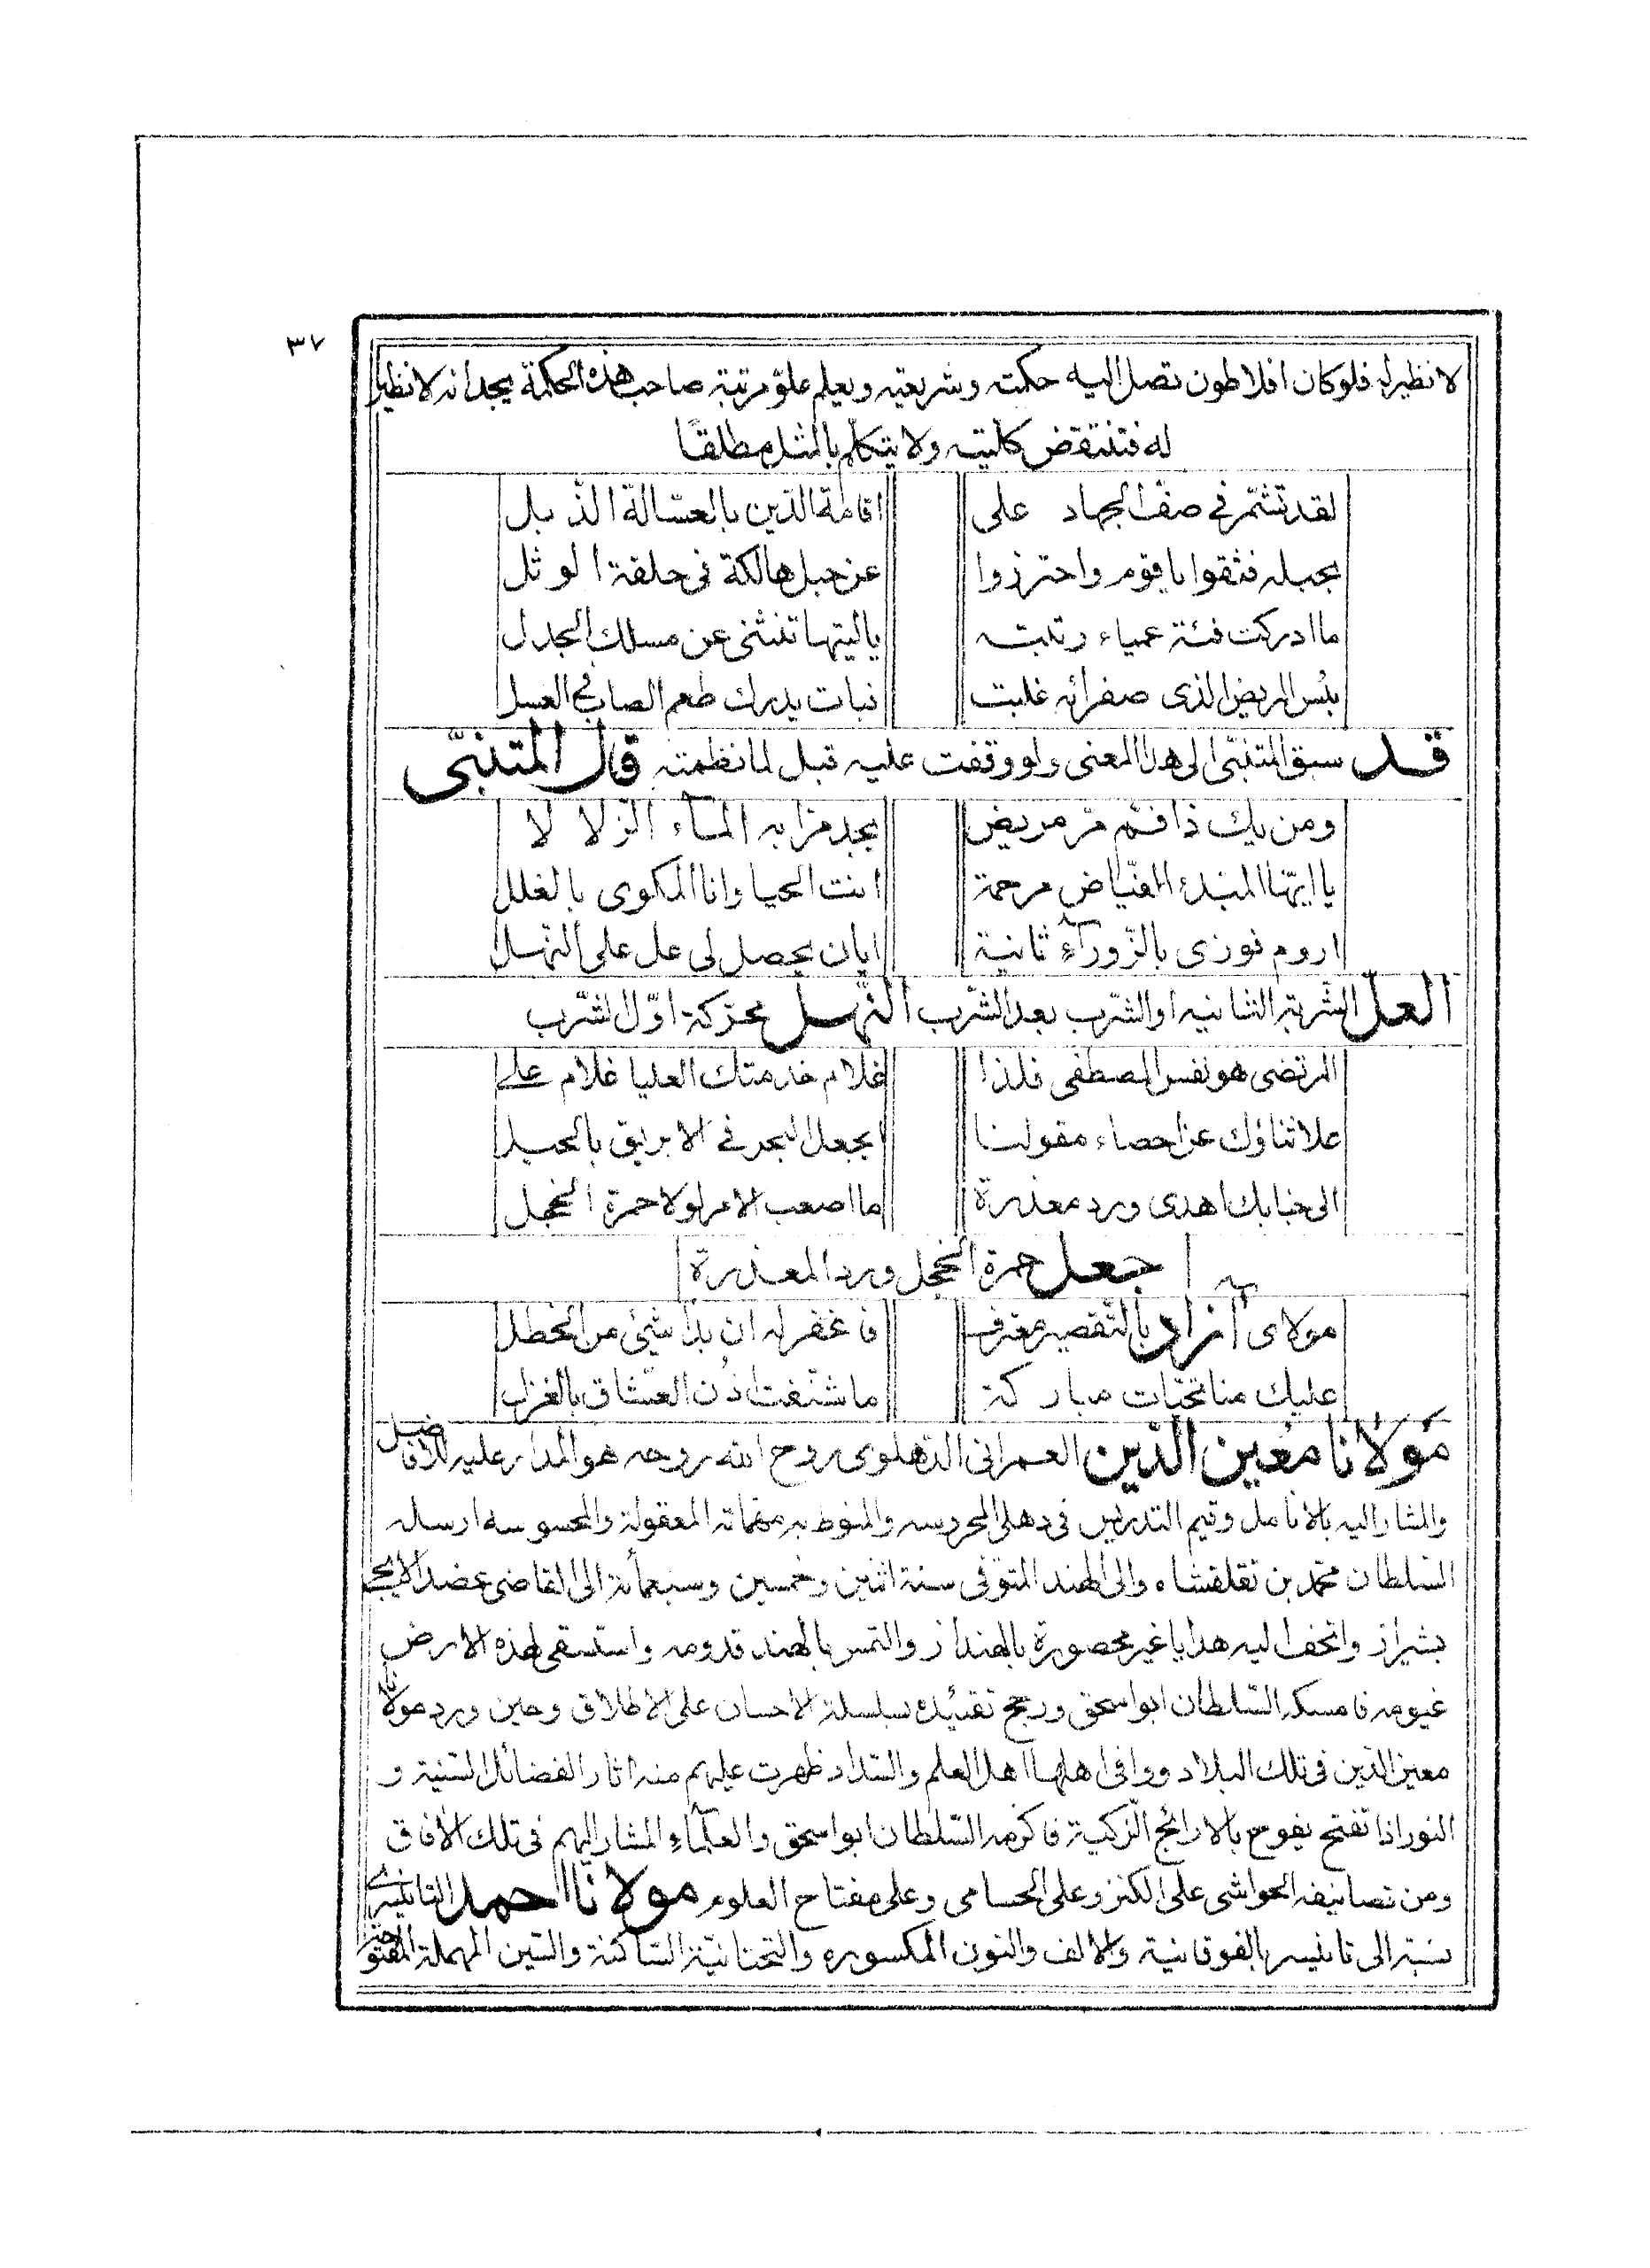 ٣٧
لا نظير له فلو كان افلاطون تصل اليه حكمته وشريعته ويعلم علوّ مرتبة صاحب هذه الحكمة يجد انه لا نظير
له فتنتقض كليته ولا يتكلم بالمثل مطلقًا
لقد تشمّر في صفّ الجهاد على اقامة الدّين بالعسّالة الذّبل
بحبله فثقوا يا قوم واحترزوا عن حبل هالكة في حلقة الوثل
ما ادركت فئة عمياء رتبته يا ليتها تنثنى عن مسلك الجدل
بئس المريض الذى صفرائه غلبت فبات يدرك طعم الصاب في العسل
قد سبق المتنبّى الى هذا المعنى ولو وقفت عليه قبل لما نظمته قال المتنبّى
ومن يك ذا فم مرّ مريض يجد مرّا به المآء الزّلا لا
يا ايّها المبدء الفيّاض مرحمة انت الحيا وانا المكوى بالغلل
اروم فوزى بالزّورآء ثانية ايان يحصل لى عل على النّهل
العلّ الشّربة الثانيه او الشّرب بعد الشّرب النّهل محرّكة اوّل الشّرب
المرتضى هو نفس المصطفى فلذا غلام خدمتك العليا غلام على
علا ثناؤك عن احصاء مقولنا يجعل البحر في الابريق بالحيل
الى جنابك اهدى ورد معذرة ما اصعب الامر لولا حمرة الخجل
جعل حمرة الخجل ورد المعذرة
مولاى آزاد بالتّقصير معترف فاغفر له ان بدا شيئ من الخطل
عليك منا تحيّات مباركة ما شنّفت اذن العشّاق بالغزل
مولانا معين الدّين العمرانى الدّهلوى روح الله روحه هو المدار عليه للافاضل
والمشار اليه بالانامل وقيم التدريس فى دهلى المحروسه والمنوط به مهمّاته المعقولة والمحسوسه ارسله
السّلطان محمّد بن تغلقشاه والى الهند المتوفّى سنة اثنين وخمسين وسبعمأئة الى القاضى عضد الايجى
بشيراز واتحف اليه هدايا غير محصورة بالهنداز والتمس بالهند قدومه واستسقى لهذه الارض
غيومه فامسكه السّلطان ابو اسحق ورجح تقييده بسلسلة الاحسان على الاطلاق وحين ورد مولانا
معين الدّين فى تلك البلاد ووافى اهلها اهل العلم والسّداد ظهرت عليهم منه اثار الفضائل السّنية و
النور اذا تفتح يفوح بالارائج الزكية فاكرمه السّلطان ابو اسحق والعلمآء المشار اليهم فى تلك الآفاق
ومن تصانيفه الحواشى على الكنز وعلى الحسامى وعلى مفتاح العلوم مولانا احمد التانيسرى
نسبة الى تانيسر بالفوقانية والالف والنون المكسوره والتحتانيّة السّاكنة والسّين المهملة المفتوحة